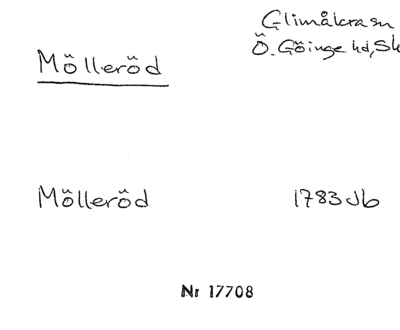 Glimåkra sn
Ö. Göinge hd, Sk
Mölleröd
Mölleröd 1783 Jb
Nr 17708